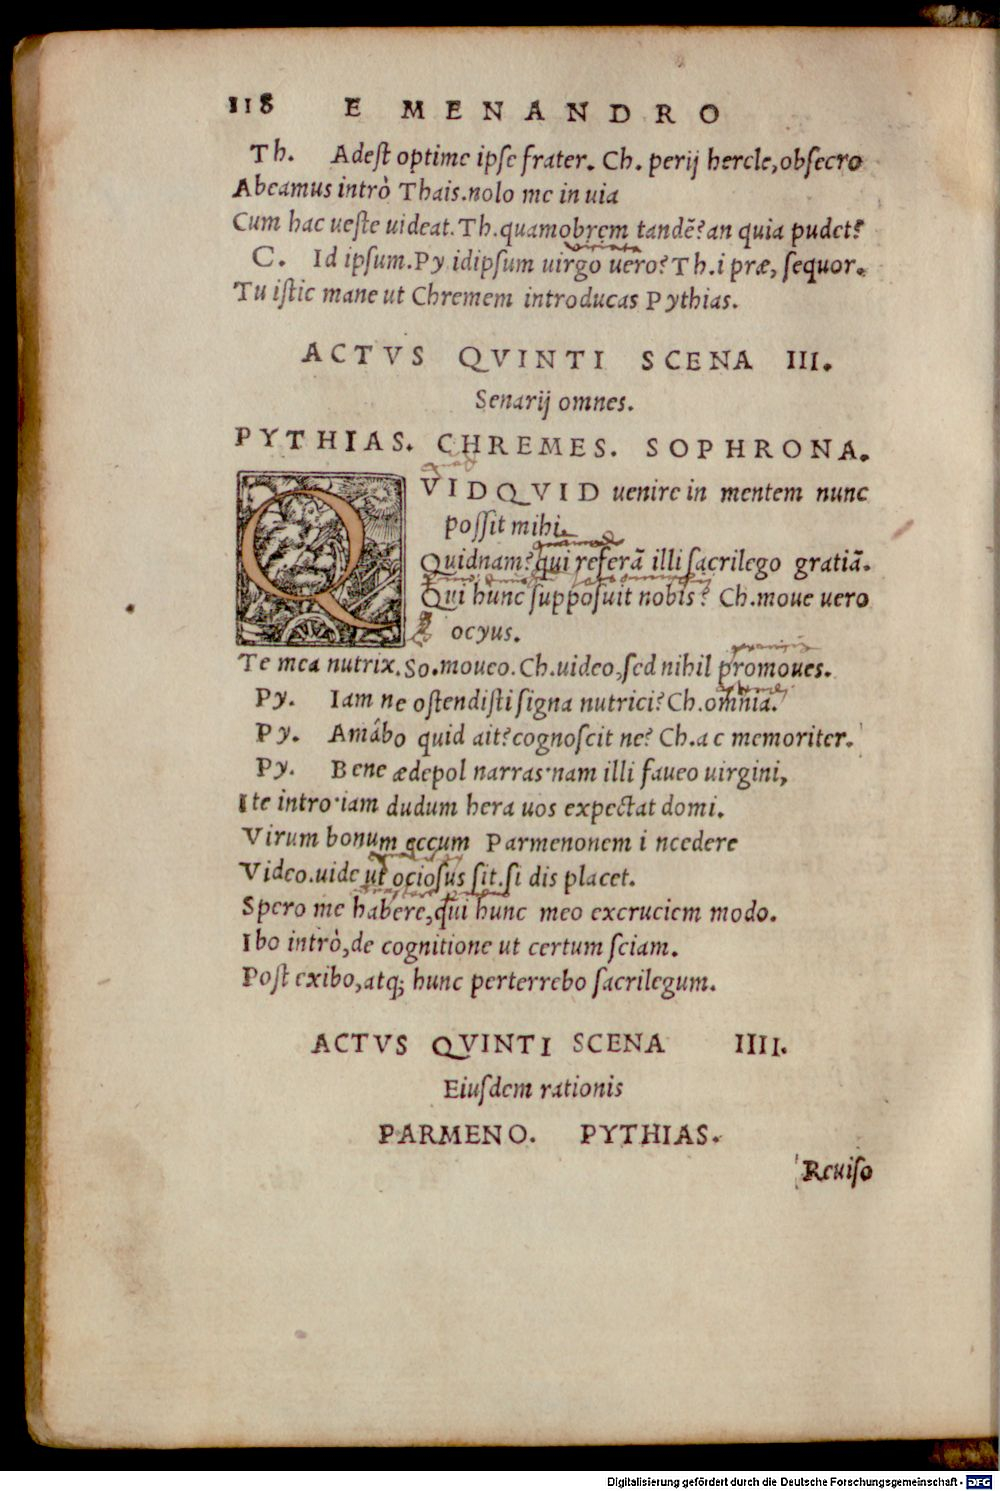 118 E MENANDRO
Th. Adest optime ipse frater. Ch. perij hercle, obsecro
Abeamus intrò Thais. nolo me in uia
Cum hac ueste uideat. Th. quamobrem tandẽ? an quia pudet?
C. Id ipsum. Py idipsum uirgo uero? Th. i præ, sequor.
Tu istic mane ut Chremem introducas Pythias.
ACTVS QVINTI SCENA III.
Senarij omnes.
PYTHIAS. CHREMES. SOPHRONA.
QVIDQVID uenire in mentem nunc
possit mihi.
Quidnam? qui referã illi sacrilego gratiã.
Qui hunc supposuit nobis? Ch. moue uero
ocyus.
Te mea nutrix. So. moueo. Ch. uideo, sed nihil promoues.
Py. Iam ne ostendisti signa nutrici? Ch. omnia.
Py. Amábo quid ait? cognoscit ne? Ch. ac memoriter.
Py. Bene ædepol narras· nam illi faueo uirgini,
Ite intro· iam dudum hera uos expectat domi.
Virum bonum eccum Parmenonem i ncedere
Video. uide ut ociosus sit. si dis placet.
Spero me habere, qui hunc meo excruciem modo.
Ibo intrò, de cognitione ut certum sciam.
Post exibo, atq; hunc perterrebo sacrilegum.
ACTVS QVINTI SCENA IIII.
Eiusdem rationis
PARMENO. PYTHIAS.
Reuiso
Digitalisierung gefördert durch die Deutsche Forschungsgemeinschaft - DFG